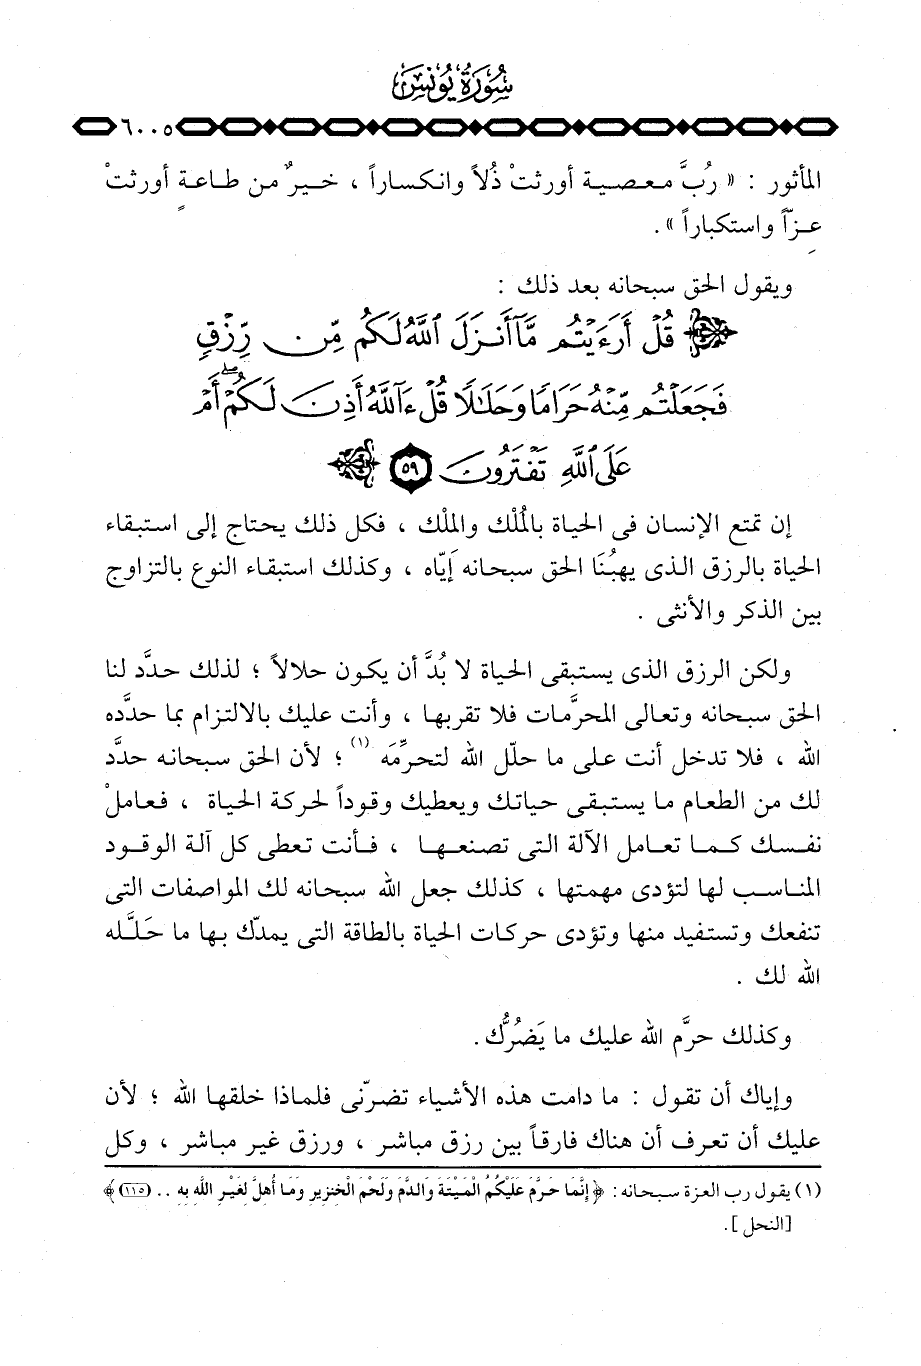 سُورَةُ يُونُسَ
٦٠٠٥
المأثور : « رُبَّ معصية أورثتْ ذُلاً وانكساراً ، خيرٌ من طاعةٍ أورثتْ
عِزّاً واستكباراً » .
ويقول الحق سبحانه بعد ذلك :
قُلْ أَرَءَيْتُم مَّآ أَنزَلَ ٱللَّهُ لَكُم مِّن رِّزْقٍ
فَجَعَلْتُم مِّنْهُ حَرَامًا وَحَلَٰلًا قُلْ ءَآللَّهُ أَذِنَ لَكُمْ ۖ أَمْ
عَلَى ٱللَّهِ تَفْتَرُونَ ٥٩
إن تمتع الإنسان فى الحياة بالمُلْك والملْك ، فكل ذلك يحتاج إلى استبقاء
الحياة بالرزق الذى يهبُنَا الحق سبحانه إيَّاه ، وكذلك استبقاء النوع بالتزاوج
بين الذكر والأنثى .
ولكن الرزق الذى يستبقى الحياة لا بُدَّ أن يكون حلالاً ؛ لذلك حدَّد لنا
الحق سبحانه وتعالى المحرَّمات فلا تقربها ، وأنت عليك بالالتزام بما حدَّده
الله ، فلا تدخل أنت على ما حلّل الله لتحرِّمَه (١) ؛ لأن الحق سبحانه حدَّد
لك من الطعام ما يستبقى حياتك ويعطيك وقوداً لحركة الحياة ، فعاملْ
نفسك كما تعامل الآلة التى تصنعها ، فأنت تعطى كل آلة الوقود
المناسب لها لتؤدى مهمتها ، كذلك جعل الله سبحانه لك المواصفات التى
تنفعك وتستفيد منها وتؤدى حركات الحياة بالطاقة التى يمدّك بها ما حَلَّله
الله لك .
وكذلك حرَّم الله عليك ما يَضُرُّك .
وإياك أن تقول : ما دامت هذه الأشياء تضرّنى فلماذا خلقها الله ؛ لأن
عليك أن تعرف أن هناك فارقاً بين رزق مباشر ، ورزق غير مباشر ، وكل
(١) يقول رب العزة سبحانه : ﴿ إِنَّمَا حَرَّمَ عَلَيْكُمُ الْمَيْتَةَ وَالدَّمَ وَلَحْمَ الْخِنزِيرِ وَمَا أُهِلَّ لِغَيْرِ اللَّهِ بِهِ .. (١١٥) ﴾
[النحل] .